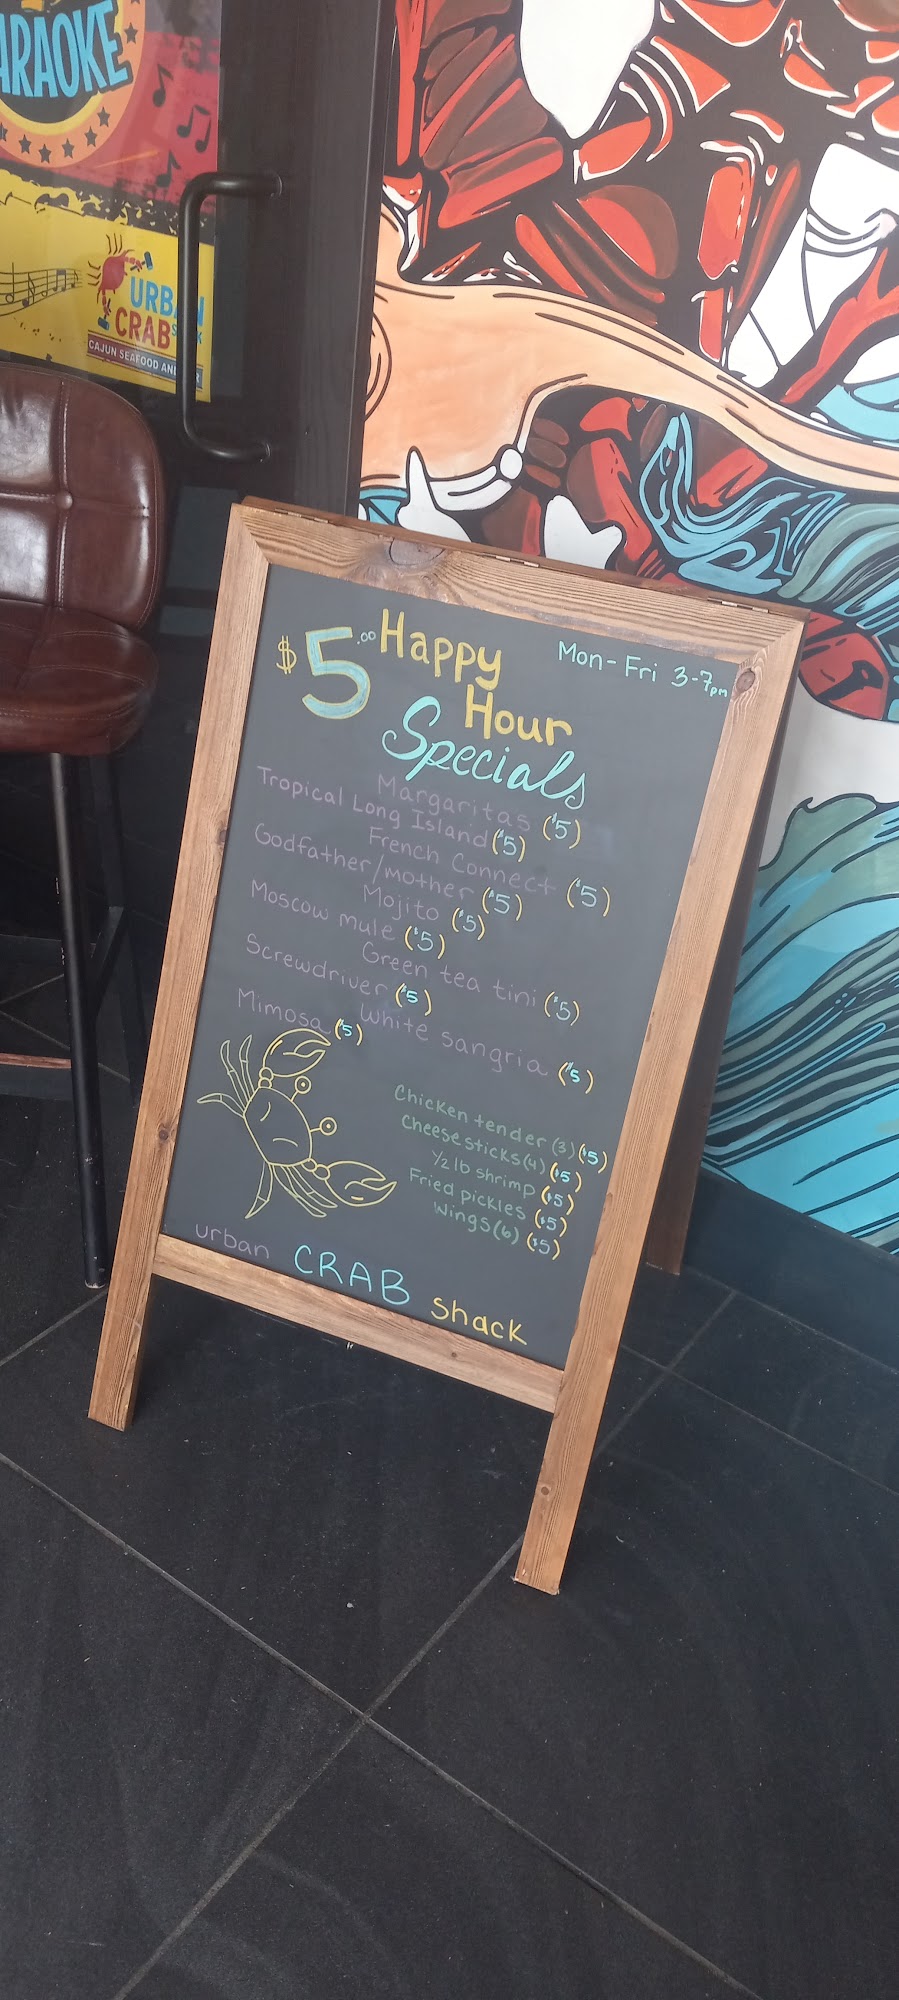 ARAOKE
URBAN
CRAB
CAJUN SEAFOOD AND
$5.00 Happy
Hour
Specials
Mon-Fri 3-7pm
Margaritas ($5)
Tropical Long Island ($5)
French Connect ($5)
Godfather/mother ($5)
Mojito ($5)
Moscow mule ($5)
Green tea tini ($5)
Screwdriver ($5)
White sangria ($5)
Mimosa ($5)
Chicken tender (3) ($5)
Cheese sticks (4) ($5)
1/2 lb shrimp ($5)
Fried pickles ($5)
Wings (6) ($5)
urban CRAB shack